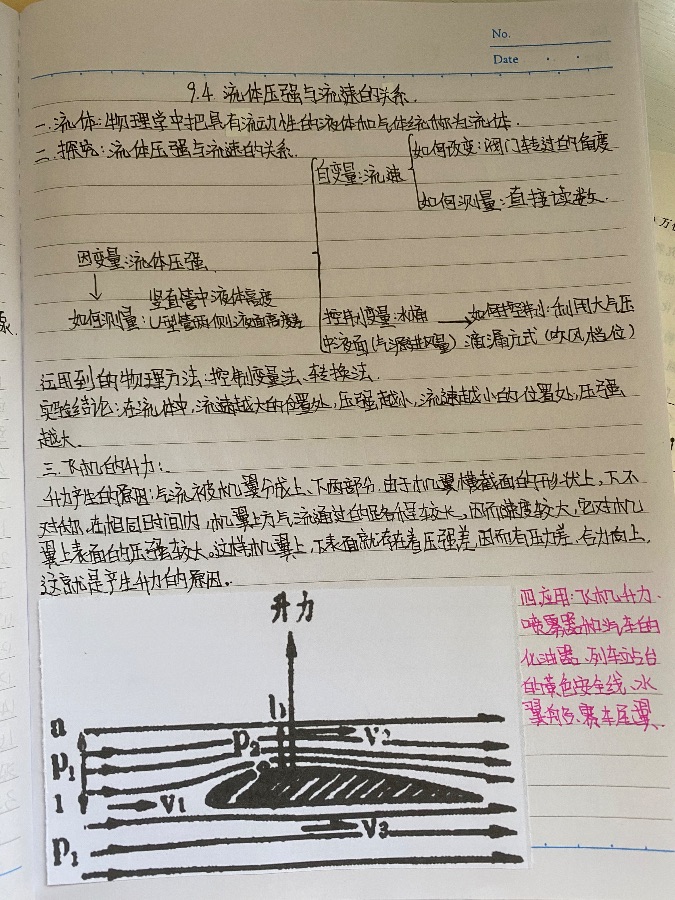 No.
Date
9.4 流体压强与流速的关系.
一.流体:物理学中把具有流动性的液体和气体统称为流体.
二.探究:流体压强与流速的关系.
自变量:流速
如何改变:阀门转过的角度
如何测量:直接读数.
因变量:流体压强
↓
如何测量:
竖直管中液体高度
U型管两侧液面高度差
控制变量:水桶
中液面(气源进风量)
如何控制:利用大气压
滴漏方式(吹风档位)
运用到的物理方法:控制变量法、转换法.
实验结论:在流体中,流速越大的位置处,压强越小,流速越小的位置处,压强
越大.
三.飞机的升力:
升力产生的原因:气流被机翼分成上、下两部分,由于机翼横截面的形状上,下不
对称,在相同时间内,机翼上方气流通过的路程较长,因而速度较大,它对机
翼上表面的压强较大。这样机翼上,下表面就存在着压强差,因而有压力差,合力向上,
这就是产生升力的原因.
四.应用:飞机升力.
喷雾器和汽车的
化油器、列车站台
的黄色安全线、水
翼船、赛车尾翼
升力
a
P₁
1
P₂
V₂
V₁
V₃
P₁